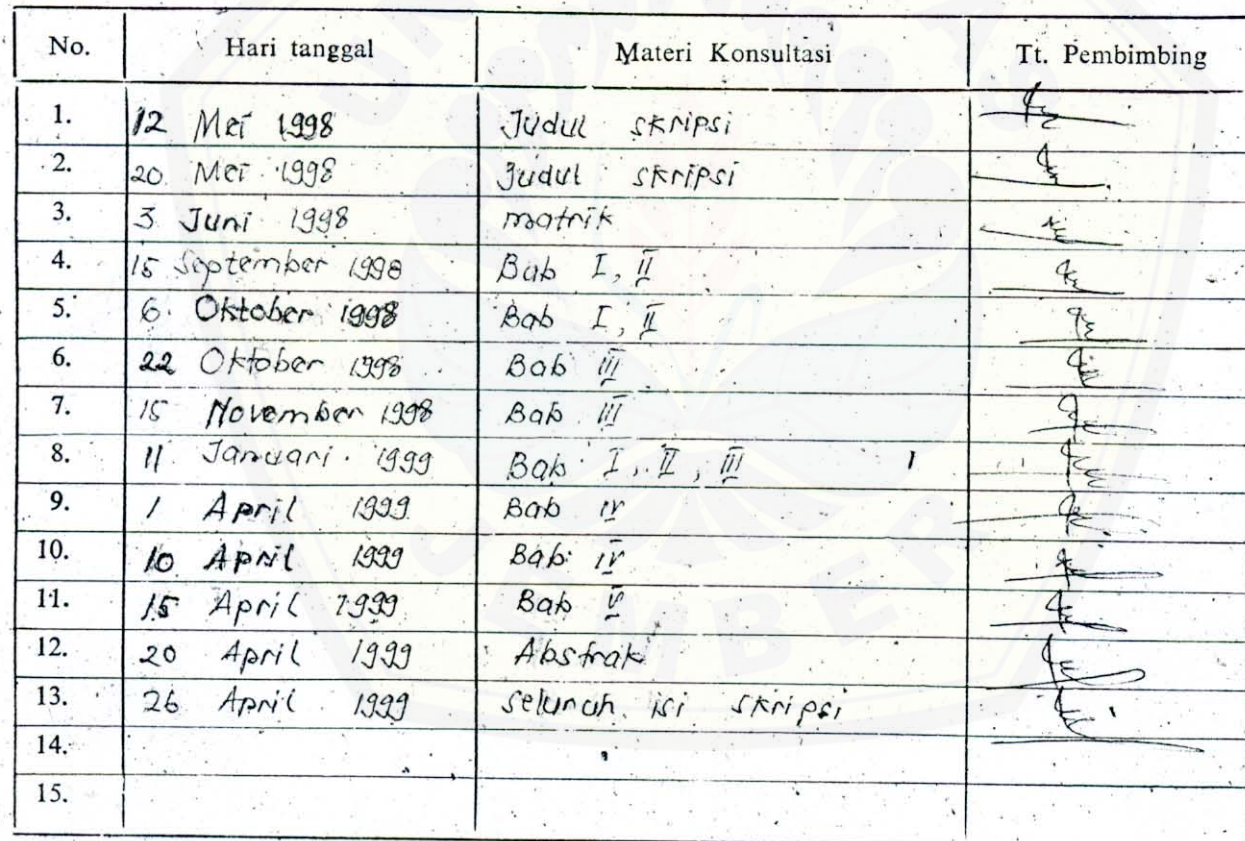 No. Hari tanggal Materi Konsultasi Tt. Pembimbing
1. 12 Mei 1998 Judul skripsi
2. 20 Mei 1998 Judul skripsi
3. 3 Juni 1998 matrik
4. 15 September 1998 Bab I, II
5. 6 Oktober 1998 Bab I, II
6. 22 Oktober 1998 Bab III
7. 15 November 1998 Bab III
8. 11 Januari 1999 Bab I, II, III
9. 1 April 1999 Bab IV
10. 10 April 1999 Bab IV
11. 15 April 1999 Bab V
12. 20 April 1999 Abstrak
13. 26 April 1999 seluruh isi skripsi
14.
15.